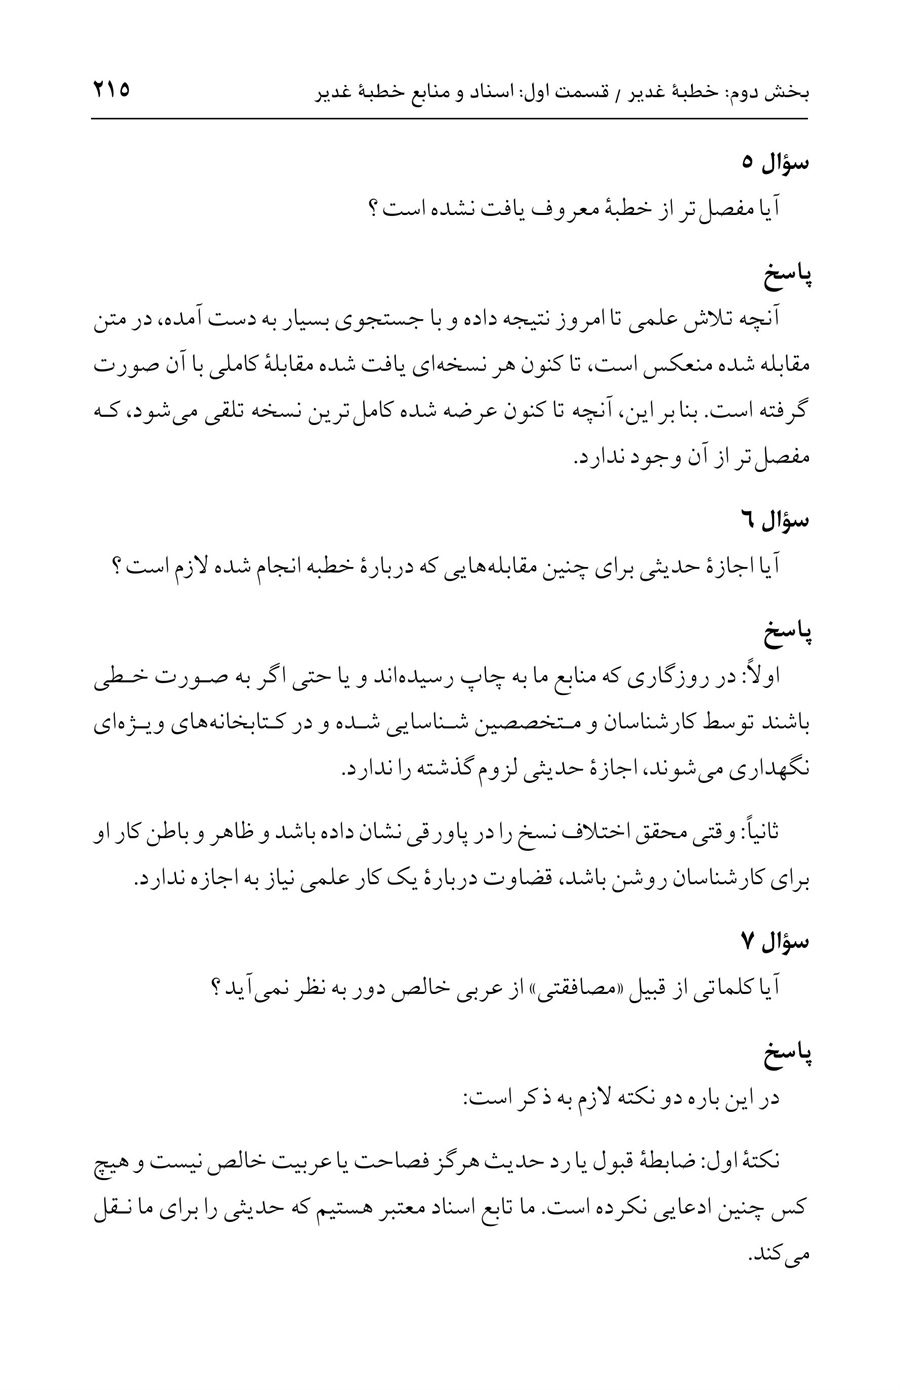 بخش دوم: خطبهٔ غدیر / قسمت اول: اسناد و منابع خطبهٔ غدیر ۲۱۵
سؤال ۵
آیا مفصل‌تر از خطبهٔ معروف یافت نشده است؟
پاسخ
آنچه تلاش علمی تا امروز نتیجه داده و با جستجوی بسیار به دست آمده، در متن
مقابله شده منعکس است، تا کنون هر نسخه‌ای یافت شده مقابلهٔ کاملی با آن صورت
گرفته است. بنابر این، آنچه تا کنون عرضه شده کامل‌ترین نسخه تلقی می‌شود، کـه
مفصل‌تر از آن وجود ندارد.
سؤال ٦
آیا اجازهٔ حدیثی برای چنین مقابله‌هایی که دربارهٔ خطبه انجام شده لازم است؟
پاسخ
اولاً: در روزگاری که منابع ما به چاپ رسیده‌اند و یا حتی اگر به صـورت خـطی
باشند توسط کارشناسان و مـتخصصین شـناسایی شـده و در کـتابخانه‌های ویـژه‌ای
نگهداری می‌شوند، اجازهٔ حدیثی لزوم گذشته را ندارد.
ثانیاً: وقتی محقق اختلاف نسخ را در پاورقی نشان داده باشد و ظاهر و باطن کار او
برای کارشناسان روشن باشد، قضاوت دربارهٔ یک کار علمی نیاز به اجازه ندارد.
سؤال ۷
آیا کلماتی از قبیل «مصافقتی» از عربی خالص دور به نظر نمی‌آید؟
پاسخ
در این باره دو نکته لازم به ذکر است:
نکتهٔ اول: ضابطهٔ قبول یا رد حدیث هرگز فصاحت یا عربیت خالص نیست و هیچ
کس چنین ادعایی نکرده است. ما تابع اسناد معتبر هستیم که حدیثی را برای ما نـقل
می‌کند.